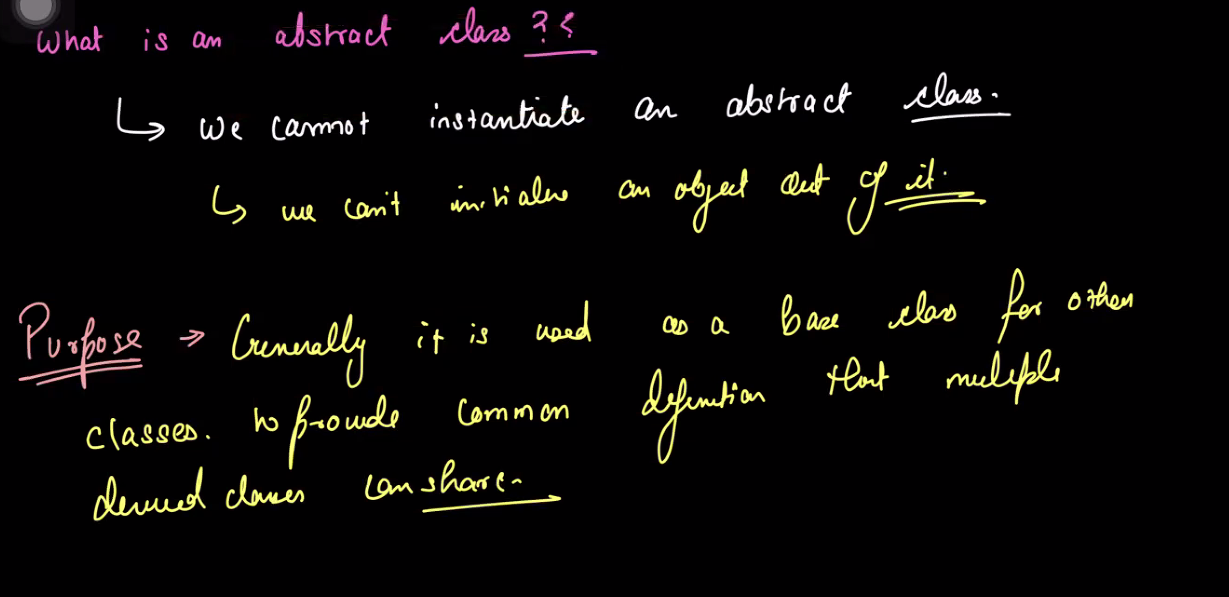 What is an abstract class ??
↳ we cannot instantiate an abstract class.
↳ we can't initialise an object out of it.
Purpose → Generally it is used as a base class for other
classes. to provide common definition that multiple
derived classes can share.